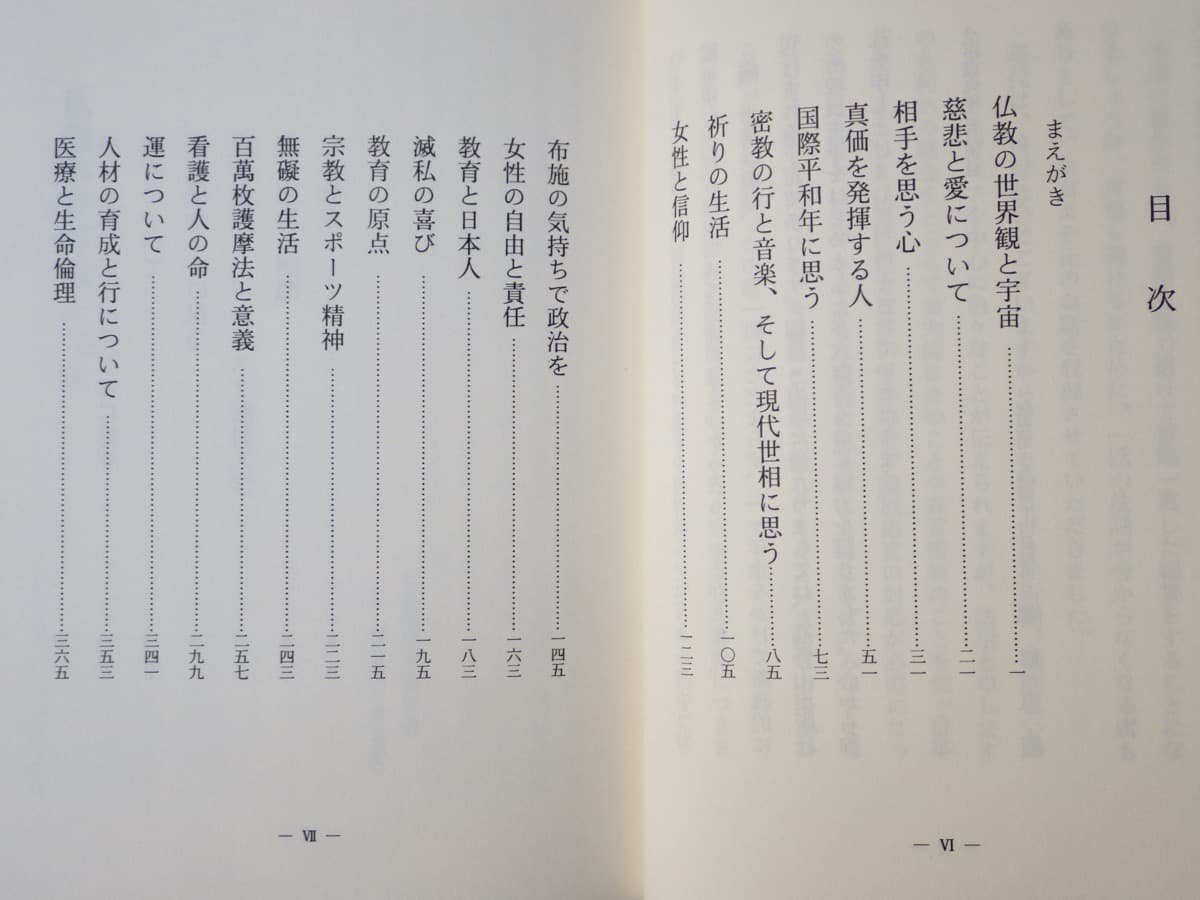 目次
まえがき
仏教の世界観と宇宙……一
慈悲と愛について……二一
相手を思う心……三一
真価を発揮する人……五一
国際平和年に思う……七三
密教の行と音楽、そして現代世相に思う……八五
祈りの生活……一〇五
女性と信仰……一二三
— Ⅵ —
布施の気持ちで政治を……一四五
女性の自由と責任……一六三
教育と日本人……一八三
滅私の喜び……一九五
教育の原点……二一五
宗教とスポーツ精神……二二三
無礙の生活……二四三
百萬枚護摩法と意義……二五七
看護と人の命……二九九
運について……三四一
人材の育成と行について……三五三
医療と生命倫理……三六五
— Ⅶ —